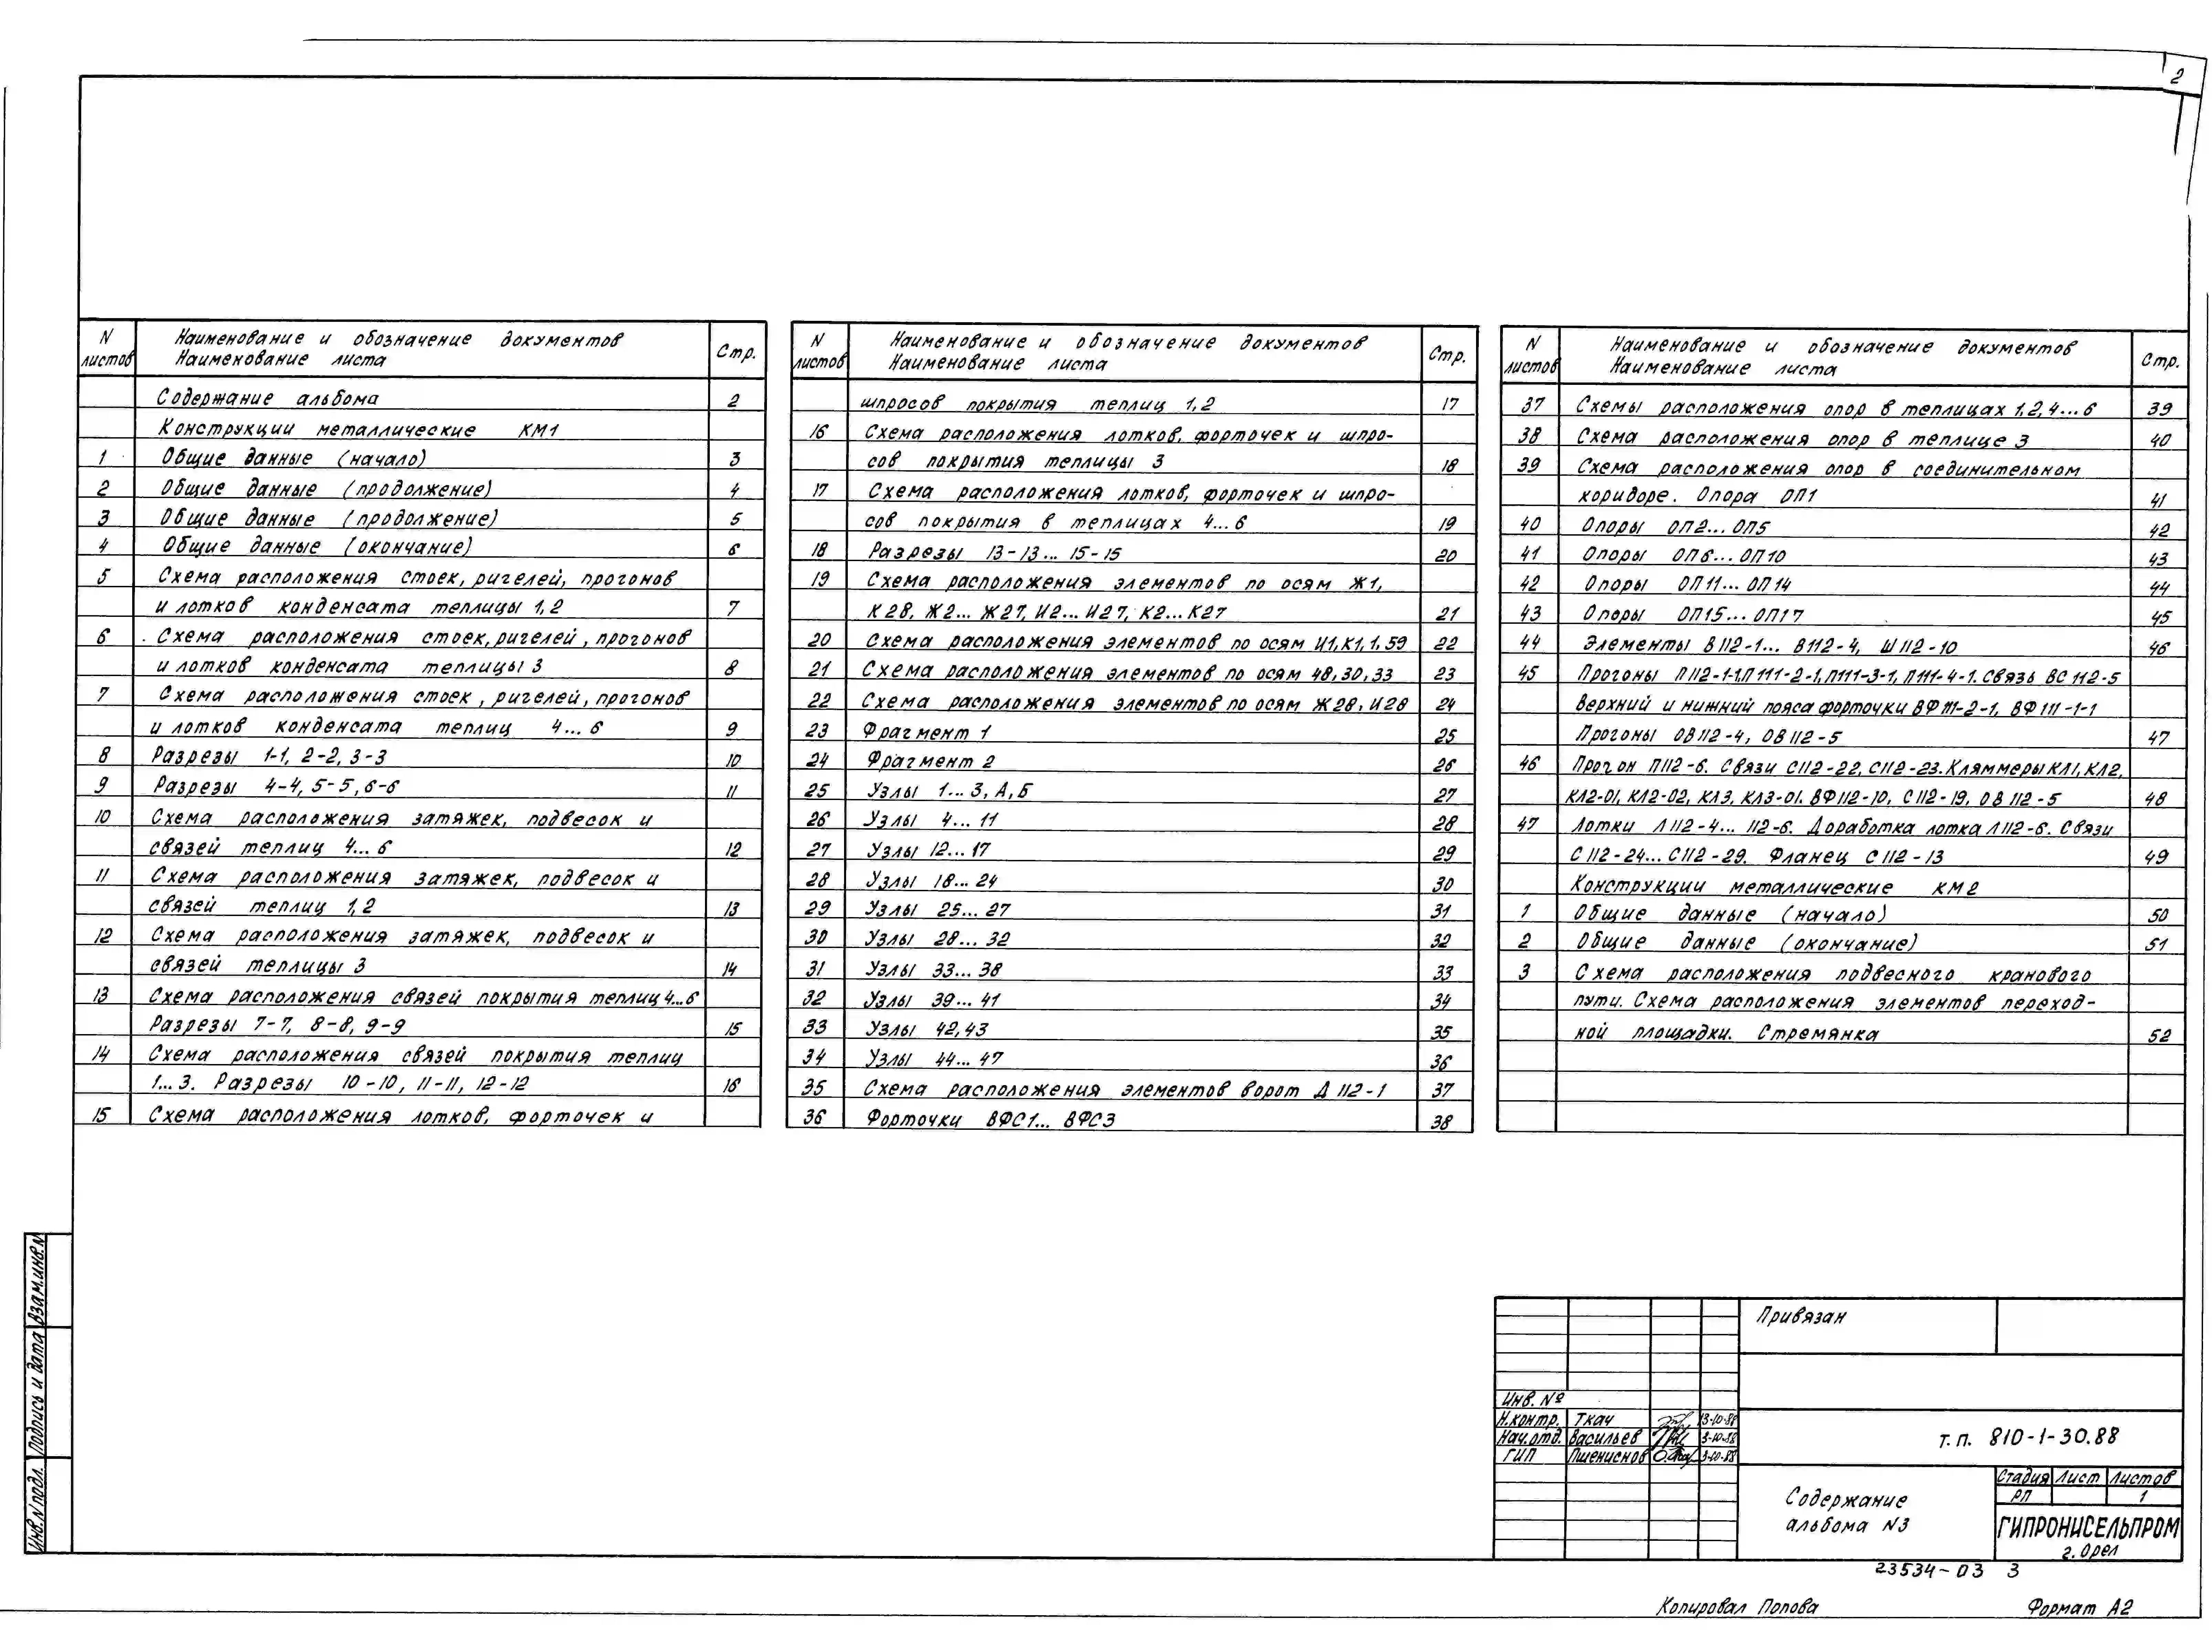 2
N листов Наименование и обозначение документов Наименование листа Стр.
Содержание альбома 2
Конструкции металлические КМ1
1 Общие данные (начало) 3
2 Общие данные (продолжение) 4
3 Общие данные (продолжение) 5
4 Общие данные (окончание) 6
5 Схема расположения стоек, ригелей, прогонов
и лотков конденсата теплицы 1,2 7
6 Схема расположения стоек, ригелей, прогонов
и лотков конденсата теплицы 3 8
7 Схема расположения стоек, ригелей, прогонов
и лотков конденсата теплиц 4...6 9
8 Разрезы 1-1, 2-2, 3-3 10
9 Разрезы 4-4, 5-5, 6-6 11
10 Схема расположения затяжек, подвесок и
связей теплиц 4...6 12
11 Схема расположения затяжек, подвесок и
связей теплиц 1,2 13
12 Схема расположения затяжек, подвесок и
связей теплицы 3 14
13 Схема расположения связей покрытия теплиц 4...6
Разрезы 7-7, 8-8, 9-9 15
14 Схема расположения связей покрытия теплиц
1...3. Разрезы 10-10, 11-11, 12-12 16
15 Схема расположения лотков, форточек и
N листов Наименование и обозначение документов Наименование листа Стр.
шпросов покрытия теплиц 1,2 17
16 Схема расположения лотков, форточек и шпро-
сов покрытия теплицы 3 18
17 Схема расположения лотков, форточек и шпро-
сов покрытия в теплицах 4...6 19
18 Разрезы 13-13... 15-15 20
19 Схема расположения элементов по осям Ж1,
К28, Ж2... Ж27, И2... И27, К2...К27 21
20 Схема расположения элементов по осям И1,К1,1,59 22
21 Схема расположения элементов по осям 48,30,33 23
22 Схема расположения элементов по осям Ж28, И28 24
23 Фрагмент 1 25
24 Фрагмент 2 26
25 Узлы 1...3, А, Б 27
26 Узлы 4...11 28
27 Узлы 12...17 29
28 Узлы 18...24 30
29 Узлы 25...27 31
30 Узлы 28...32 32
31 Узлы 33...38 33
32 Узлы 39...41 34
33 Узлы 42,43 35
34 Узлы 44...47 36
35 Схема расположения элементов ворот Д112-1 37
36 Форточки ВФС1... ВФС3 38
N листов Наименование и обозначение документов Наименование листа Стр.
37 Схемы расположения опор в теплицах 1,2,4...6 39
38 Схема расположения опор в теплице 3 40
39 Схема расположения опор в соединительном
коридоре. Опора ОП1 41
40 Опоры ОП2...ОП5 42
41 Опоры ОП6...ОП10 43
42 Опоры ОП11...ОП14 44
43 Опоры ОП15...ОП17 45
44 Элементы В112-1... В112-4, Ш112-10 46
45 Прогоны П112-1-1,П111-2-1,П111-3-1, П111-4-1. Связь ВС 112-5
Верхний и нижний пояса форточки ВФ111-2-1, ВФ111-1-1
Прогоны ОВ112-4, ОВ112-5 47
46 Прогон П112-6. Связи С112-22, С112-23. Кляммеры КЛ1, КЛ2,
КЛ2-01, КЛ2-02, КЛ3, КЛ3-01. ВФ112-10, С112-19, ОВ112-5 48
47 Лотки Л112-4... 112-6. Доработка лотка Л112-6. Связи
С112-24... С112-29. Фланец С112-13 49
Конструкции металлические КМ2
1 Общие данные (начало) 50
2 Общие данные (окончание) 51
3 Схема расположения подвесного кранового
пути. Схема расположения элементов переход-
ной площадки. Стремянка 52
Взам.инв.N
Подпись и дата
Инв.N подл.
Привязан
Инв. №
Н.контр. Ткач 13-10-88
Нач.отд. Васильев 3-10-88
ГИП Пшениснов 3-10-88
т.п. 810-1-30.88
Содержание
альбома N3
Стадия Лист Листов
РП 1
ГИПРОНИСЕЛЬПРОМ
г. Орел
23534-03 3
Копировал Попова Формат А2